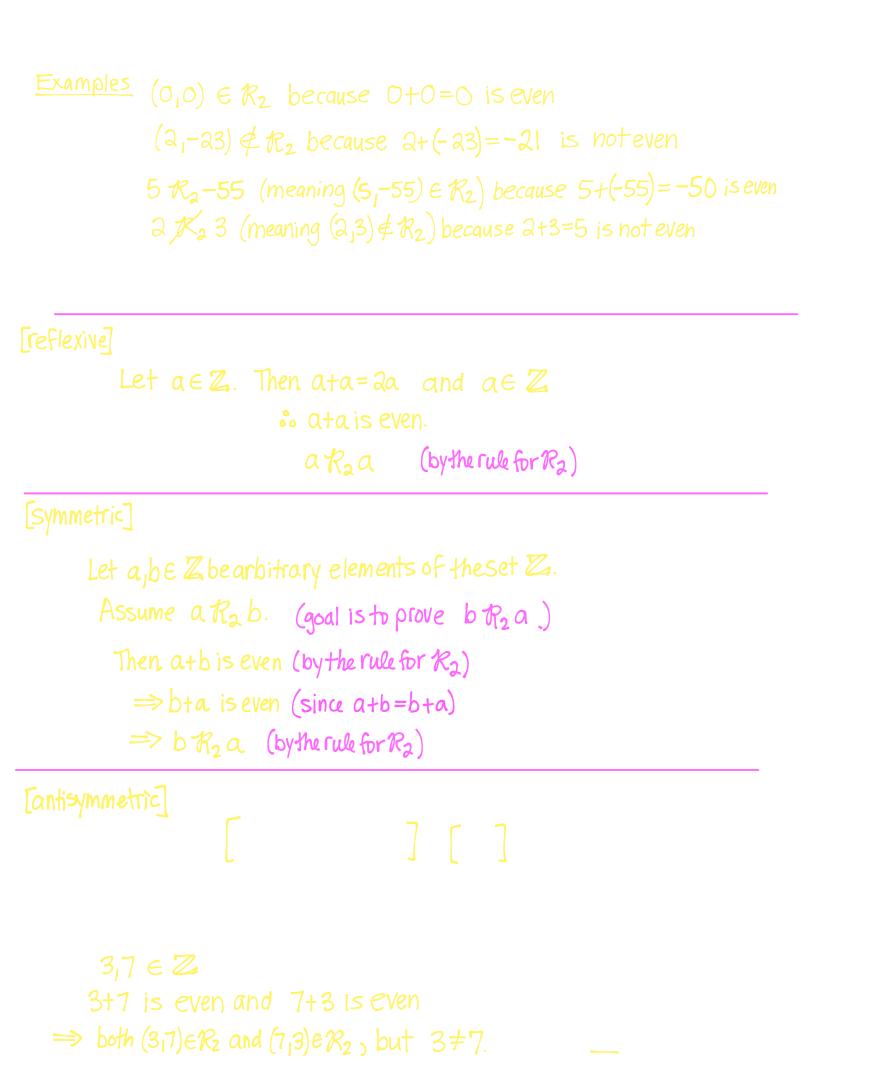 Examples (0,0) ∈ R₂ because 0+0=0 is even
(2,-23) ∉ R₂ because 2+(-23)=-21 is not even
5 R₂ -55 (meaning (5,-55) ∈ R₂) because 5+(-55)=-50 is even
2 R̸₂ 3 (meaning (2,3) ∉ R₂) because 2+3=5 is not even
[reflexive]
Let a ∈ ℤ. Then a+a=2a and a ∈ ℤ
∴ a+a is even.
a R₂ a (by the rule for R₂)
[symmetric]
Let a,b ∈ ℤ be arbitrary elements of the set ℤ.
Assume a R₂ b. (goal is to prove b R₂ a.)
Then a+b is even (by the rule for R₂)
⇒ b+a is even (since a+b=b+a)
⇒ b R₂ a (by the rule for R₂)
[antisymmetric]
[ ] [ ]
3,7 ∈ ℤ
3+7 is even and 7+3 is even
⇒ both (3,7) ∈ R₂ and (7,3) ∈ R₂, but 3≠7.